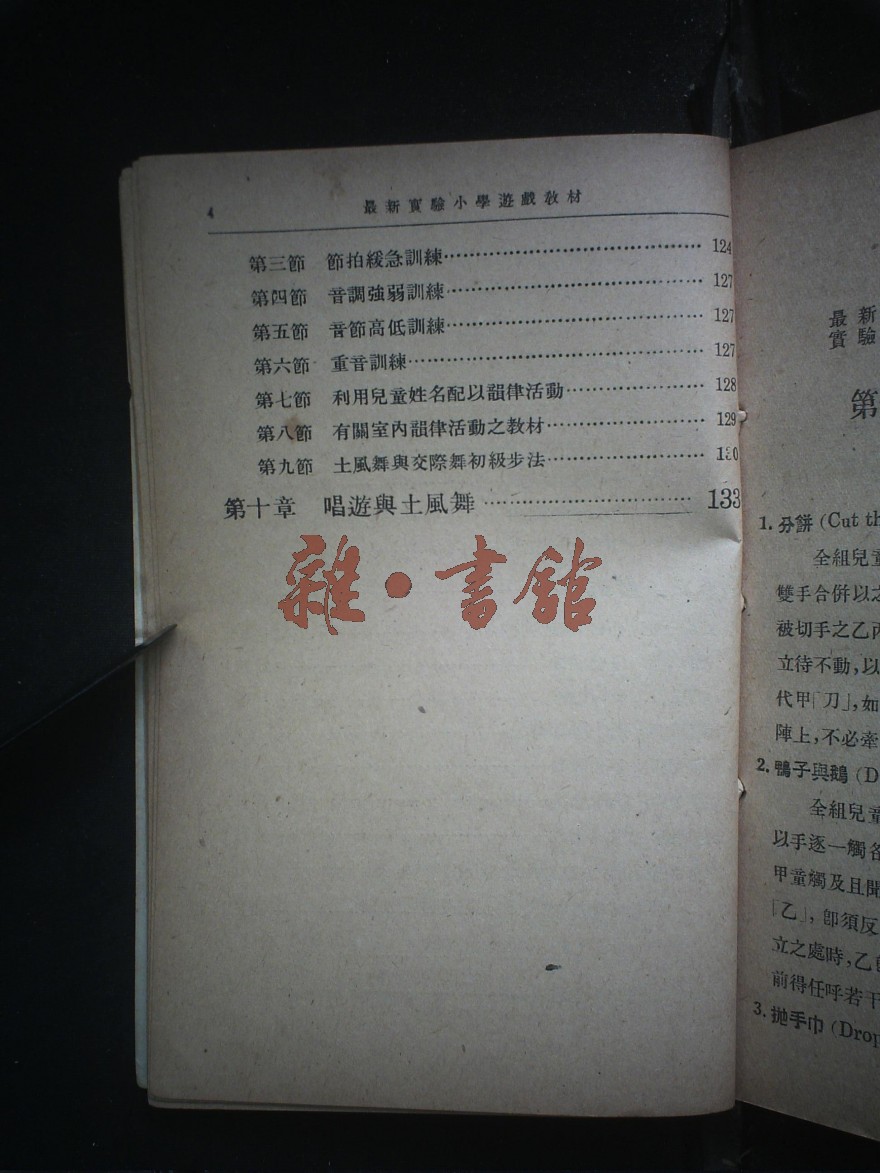 4 最新實驗小學遊戲教材
第三節 節拍緩急訓練 124
第四節 音調強弱訓練 127
第五節 音節高低訓練 127
第六節 重音訓練 127
第七節 利用兒童姓名配以韻律活動 128
第八節 有關室內韻律活動之教材 129
第九節 土風舞與交際舞初級步法 130
第十章 唱遊與土風舞 133
雜·書館
最新
實驗
第
1. 分餅 (Cut th
全組兒童
雙手合併以之
被切手之乙丙
立待不動,以
代甲「刀」,如
陣上,不必牽
2. 鴨子與鵝 (D
全組兒童
以手逐一觸各
甲童觸及且聞
「乙」,卽須反
立之處時,乙
前得任呼若干
3. 拋手巾 (Drop